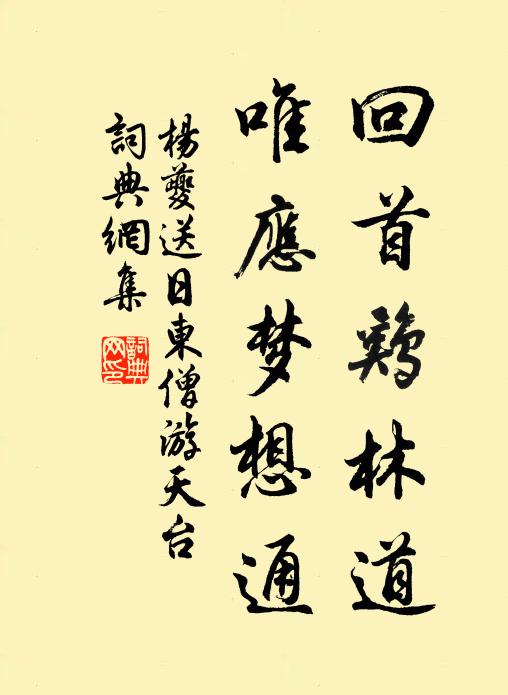 回首鷄林道
唯應梦想通
楊夔送日東僧游天台
詞典網集
詞典
网印